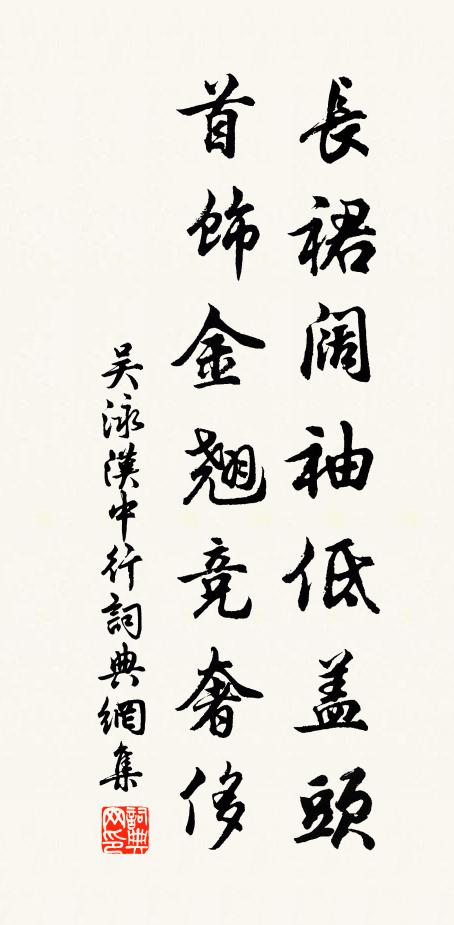 長裙阔袖低盖頭
首飾金翹竞奢侈
吴泳漢中行詞典網集
詞典网印